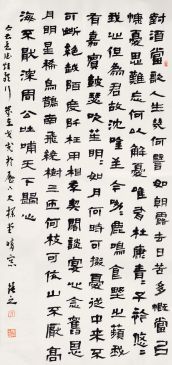 對酒當歌人生幾何譬如朝露去日苦多慨當以
慷憂思難忘何以解憂唯有杜康青〻子衿悠〻
我心但為君故沈吟至今呦〻鹿鳴食野之蘋我
有嘉賓鼓瑟吹笙明〻如月何時可掇憂從中來不
可斷絕越陌度阡枉用相存契闊談讌心念舊恩
月明星稀烏鵲南飛繞樹三匝何枝可依山不厭高
海不厭深周公吐哺天下歸心